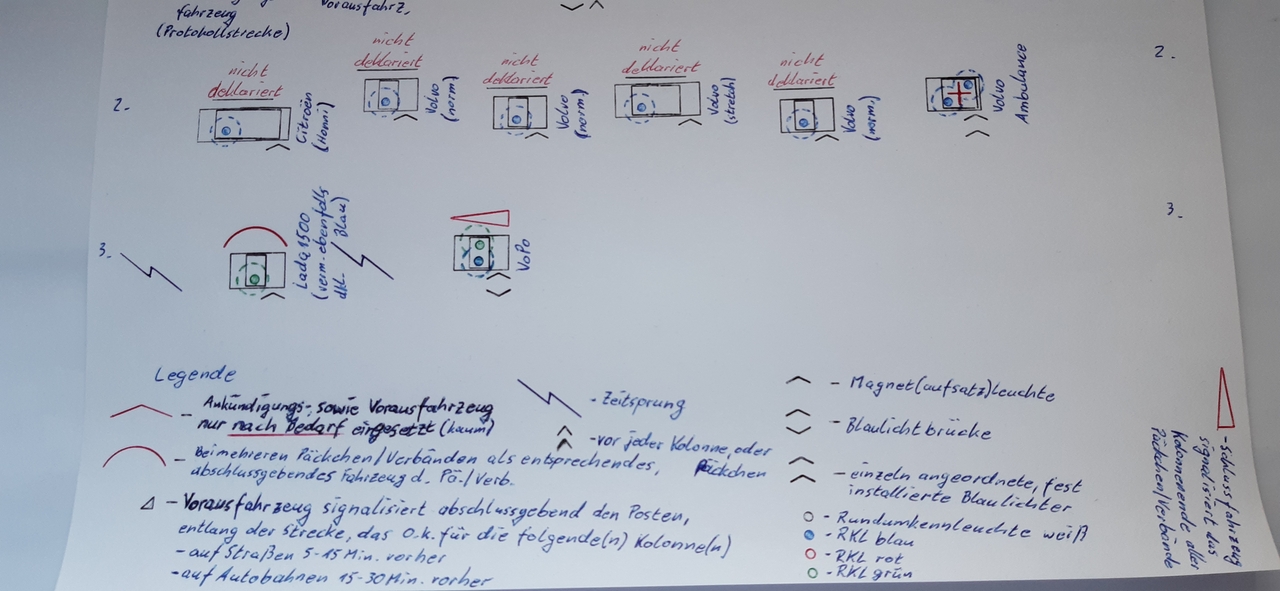 fahrzeug
Vorausfahrz.
(Protokollstrecke)
2.
nicht
deklariert
Citroën
nicht
deklariert
Volvo
(norm)
nicht
deklariert
Volvo
(norm)
nicht
deklariert
Volvo
(stretch)
nicht
deklariert
Volvo
(norm.)
Volvo
Ambulance
2.
3.
Lada 1500
(verm. ebenfalls
dkl. Blau)
VoPo
3.
Legende
- Ankündigungs-, sowie Vorausfahrzeug
nur nach Bedarf eingesetzt (kaum)
- Bei mehreren Päckchen/Verbänden als entsprechendes,
abschlussgebendes Fahrzeug d. Pä./Verb.
- Vorausfahrzeug signalisiert abschlussgebend den Posten,
entlang der Strecke, das O.k. für die folgende(n) Kolonne(n)
- auf Straßen 5-15 Min. vorher
- auf Autobahnen 15-30 Min. vorher
- Zeitsprung
- vor jeder Kolonne, oder
Päckchen
- Magnet(aufsatz)leuchte
- Blaulichtbrücke
- einzeln angeordnete, fest
installierte Blaulichter
- Rundumkennleuchte weiß
- RKL blau
- RKL rot
- RKL grün
- Schlussfahrzeug
signalisiert das
Kolonnenende aller
Päckchen/Verbände